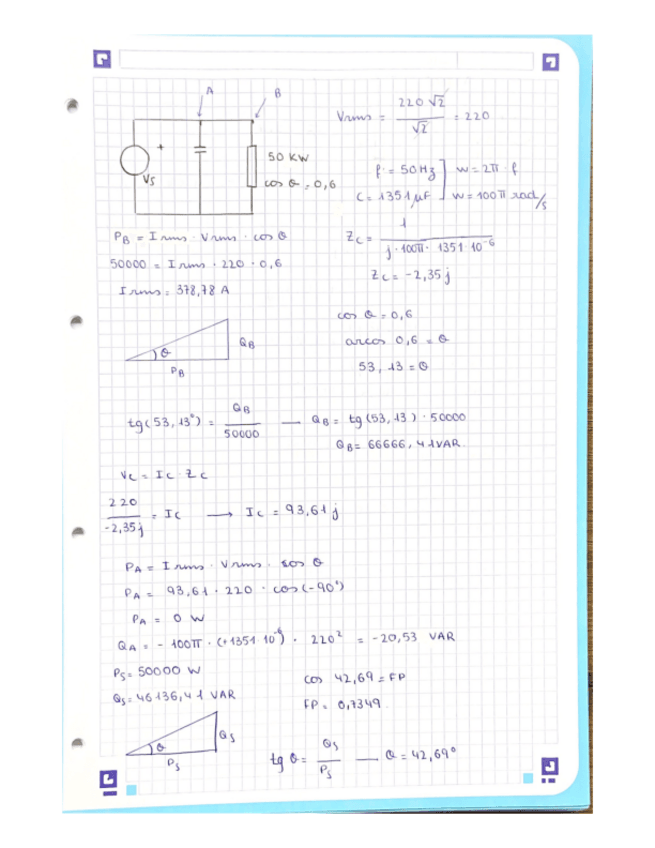 A
B
Vs
+
50 KW
cos θ = 0,6
Vrms = 220 √2 / √2 = 220
f = 50Hz
C = 1351 μF
w = 2π · f
w = 100π rad/s
P_B = Irms · Vrms · cos θ
50000 = Irms · 220 · 0,6
Irms = 378,78 A
Zc = 1 / j·100π · 1351·10^-6
Zc = -2,35 j
θ
Q_B
P_B
cos θ = 0,6
arcos 0,6 = θ
53, 13 = θ
tg(53, 13°) = Q_B / 50000 — Q_B = tg (53, 13) · 50000
Q_B = 66666, 41 VAR.
Vc = Ic · Zc
220 / -2,35j = Ic → Ic = 93,61 j
P_A = Irms · Vrms · cos θ
P_A = 93,61 · 220 · cos(-90°)
P_A = 0 W
Q_A = - 100π · (+1351·10^-6) · 220² = -20,53 VAR
Ps = 50000 W
Qs = 46136,41 VAR
cos 42,69 = FP
FP = 0,7349
θ
Qs
Ps
tg θ = Qs / Ps — θ = 42,69°